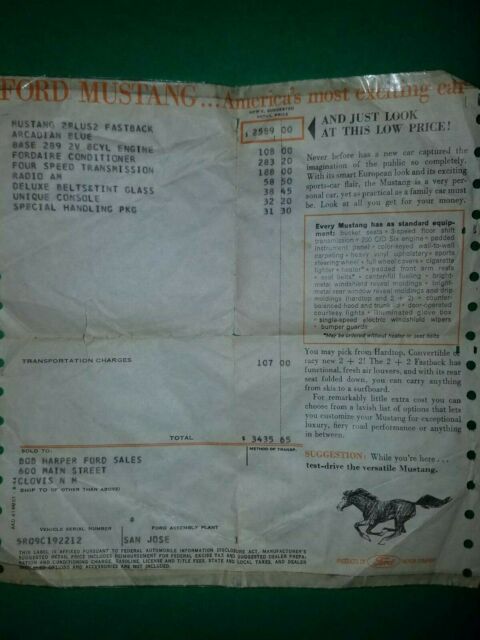 FORD MUSTANG...America's most exciting car
MFR'S. SUGGESTED
RETAIL PRICE
MUSTANG 2PLUS2 FASTBACK $ 2589 00
ARCADIAN BLUE
BASE 289 2V 8CYL ENGINE 108 00
FORDAIRE CONDITIONER 283 20
FOUR SPEED TRANSMISSION 188 00
RADIO AM 58 50
DELUXE BELTS&TINT GLASS 38 45
UNIQUE CONSOLE 32 20
SPECIAL HANDLING PKG 31 30
TRANSPORTATION CHARGES 107 00
TOTAL $ 3435 65
SOLD TO:
METHOD OF TRANSP.
BOB HARPER FORD SALES
600 MAIN STREET
CLOVIS N M
SHIP TO (IF OTHER THAN ABOVE)
VEHICLE SERIAL NUMBER FORD ASSEMBLY PLANT
5R09C192212 SAN JOSE
THIS LABEL IS AFFIXED PURSUANT TO FEDERAL AUTOMOBILE INFORMATION DISCLOSURE ACT. MANUFACTURER'S
SUGGESTED RETAIL PRICE INCLUDES REIMBURSEMENT FOR FEDERAL EXCISE TAX AND SUGGESTED DEALER PREPARATION
AND CONDITIONING CHARGE. GASOLINE, LICENSE AND TITLE FEES, STATE AND LOCAL TAXES, AND DEALER
INSTALLED OPTIONS AND ACCESSORIES ARE NOT INCLUDED.
AND JUST LOOK
AT THIS LOW PRICE!
Never before has a new car captured the
imagination of the public so completely.
With its smart European look and its exciting
sports-car flair, the Mustang is a very per-
sonal car, yet as practical as a family car must
be. Look at all you get for your money.
Every Mustang has as standard equip-
ment: bucket seats • 3-speed floor shift
transmission • 200 C/D Six engine • padded
instrument panel • color-keyed wall-to-wall
carpeting • heavy vinyl upholstery • sports
steering wheel • full wheel covers • cigarette
lighter • heater* • padded front arm rests
• seat belts* • centerfill fueling • bright-
metal windshield reveal moldings • bright-
metal rear window reveal moldings and drip
moldings (hardtop and 2 + 2) • counter-
balanced hood and trunk • door-operated
courtesy lights • illuminated glove box
• single-speed electric windshield wipers
• bumper guards
*May be ordered without heater or seat belts
You may pick from: Hardtop, Convertible or
racy new 2 + 2! The 2 + 2 Fastback has
functional, fresh air louvers, and with its rear
seat folded down, you can carry anything
from skis to a surfboard.
For remarkably little extra cost you can
choose from a lavish list of options that lets
you customize your Mustang for exceptional
luxury, fiery road performance or anything
in between.
SUGGESTION: While you're here...
test-drive the versatile Mustang.
PRODUCTS OF Ford MOTOR COMPANY